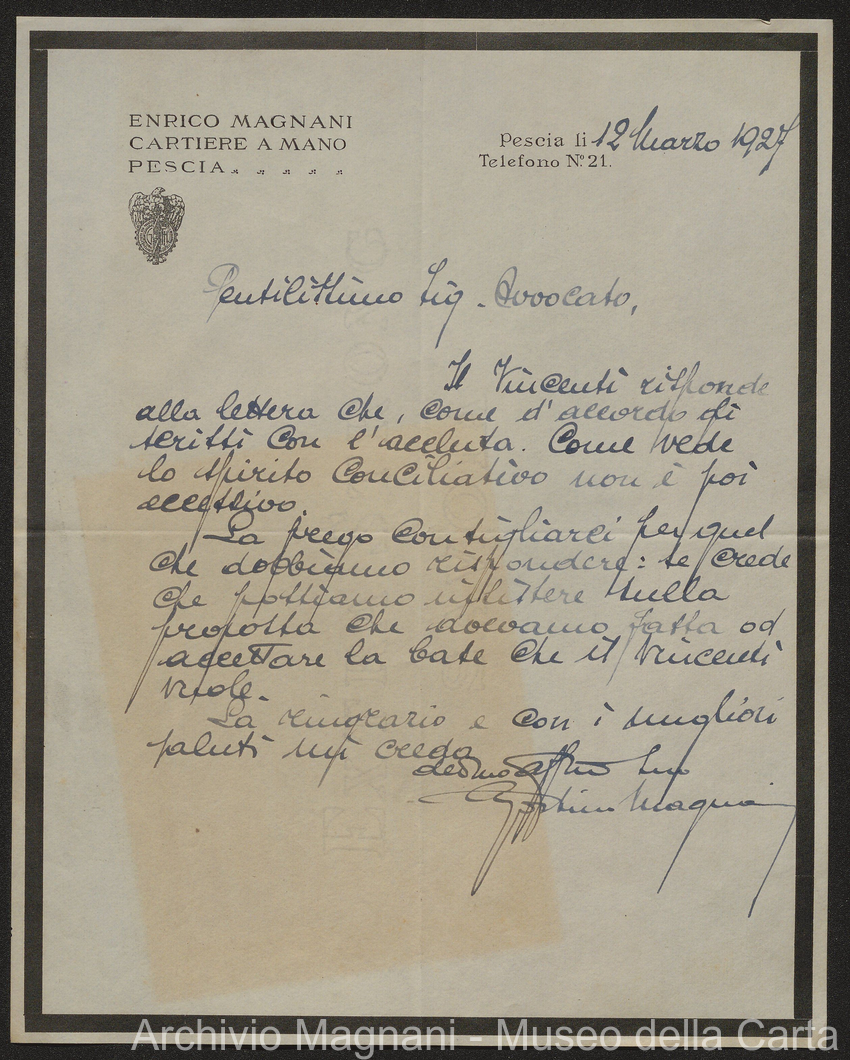 ENRICO MAGNANI
CARTIERE A MANO
PESCIA
Pescia li 12 Marzo 1927
Telefono Nº 21.
Gentilissimo Sig. Avvocato,
Il Vincenti risponde
alla lettera che, come d'accordo gli
scrissi con l'acclusa. Come vede
lo spirito conciliativo non è poi
eccessivo.
La prego consigliarci per quel
che dobbiamo rispondere: se crede
che possiamo insistere sulla
proposta che avevamo fatta od
accettare la base che il Vincenti
vuole.
La ringrazio e con i migliori
saluti mi creda
devmo affmo Suo
Magnani
Archivio Magnani - Museo della Carta